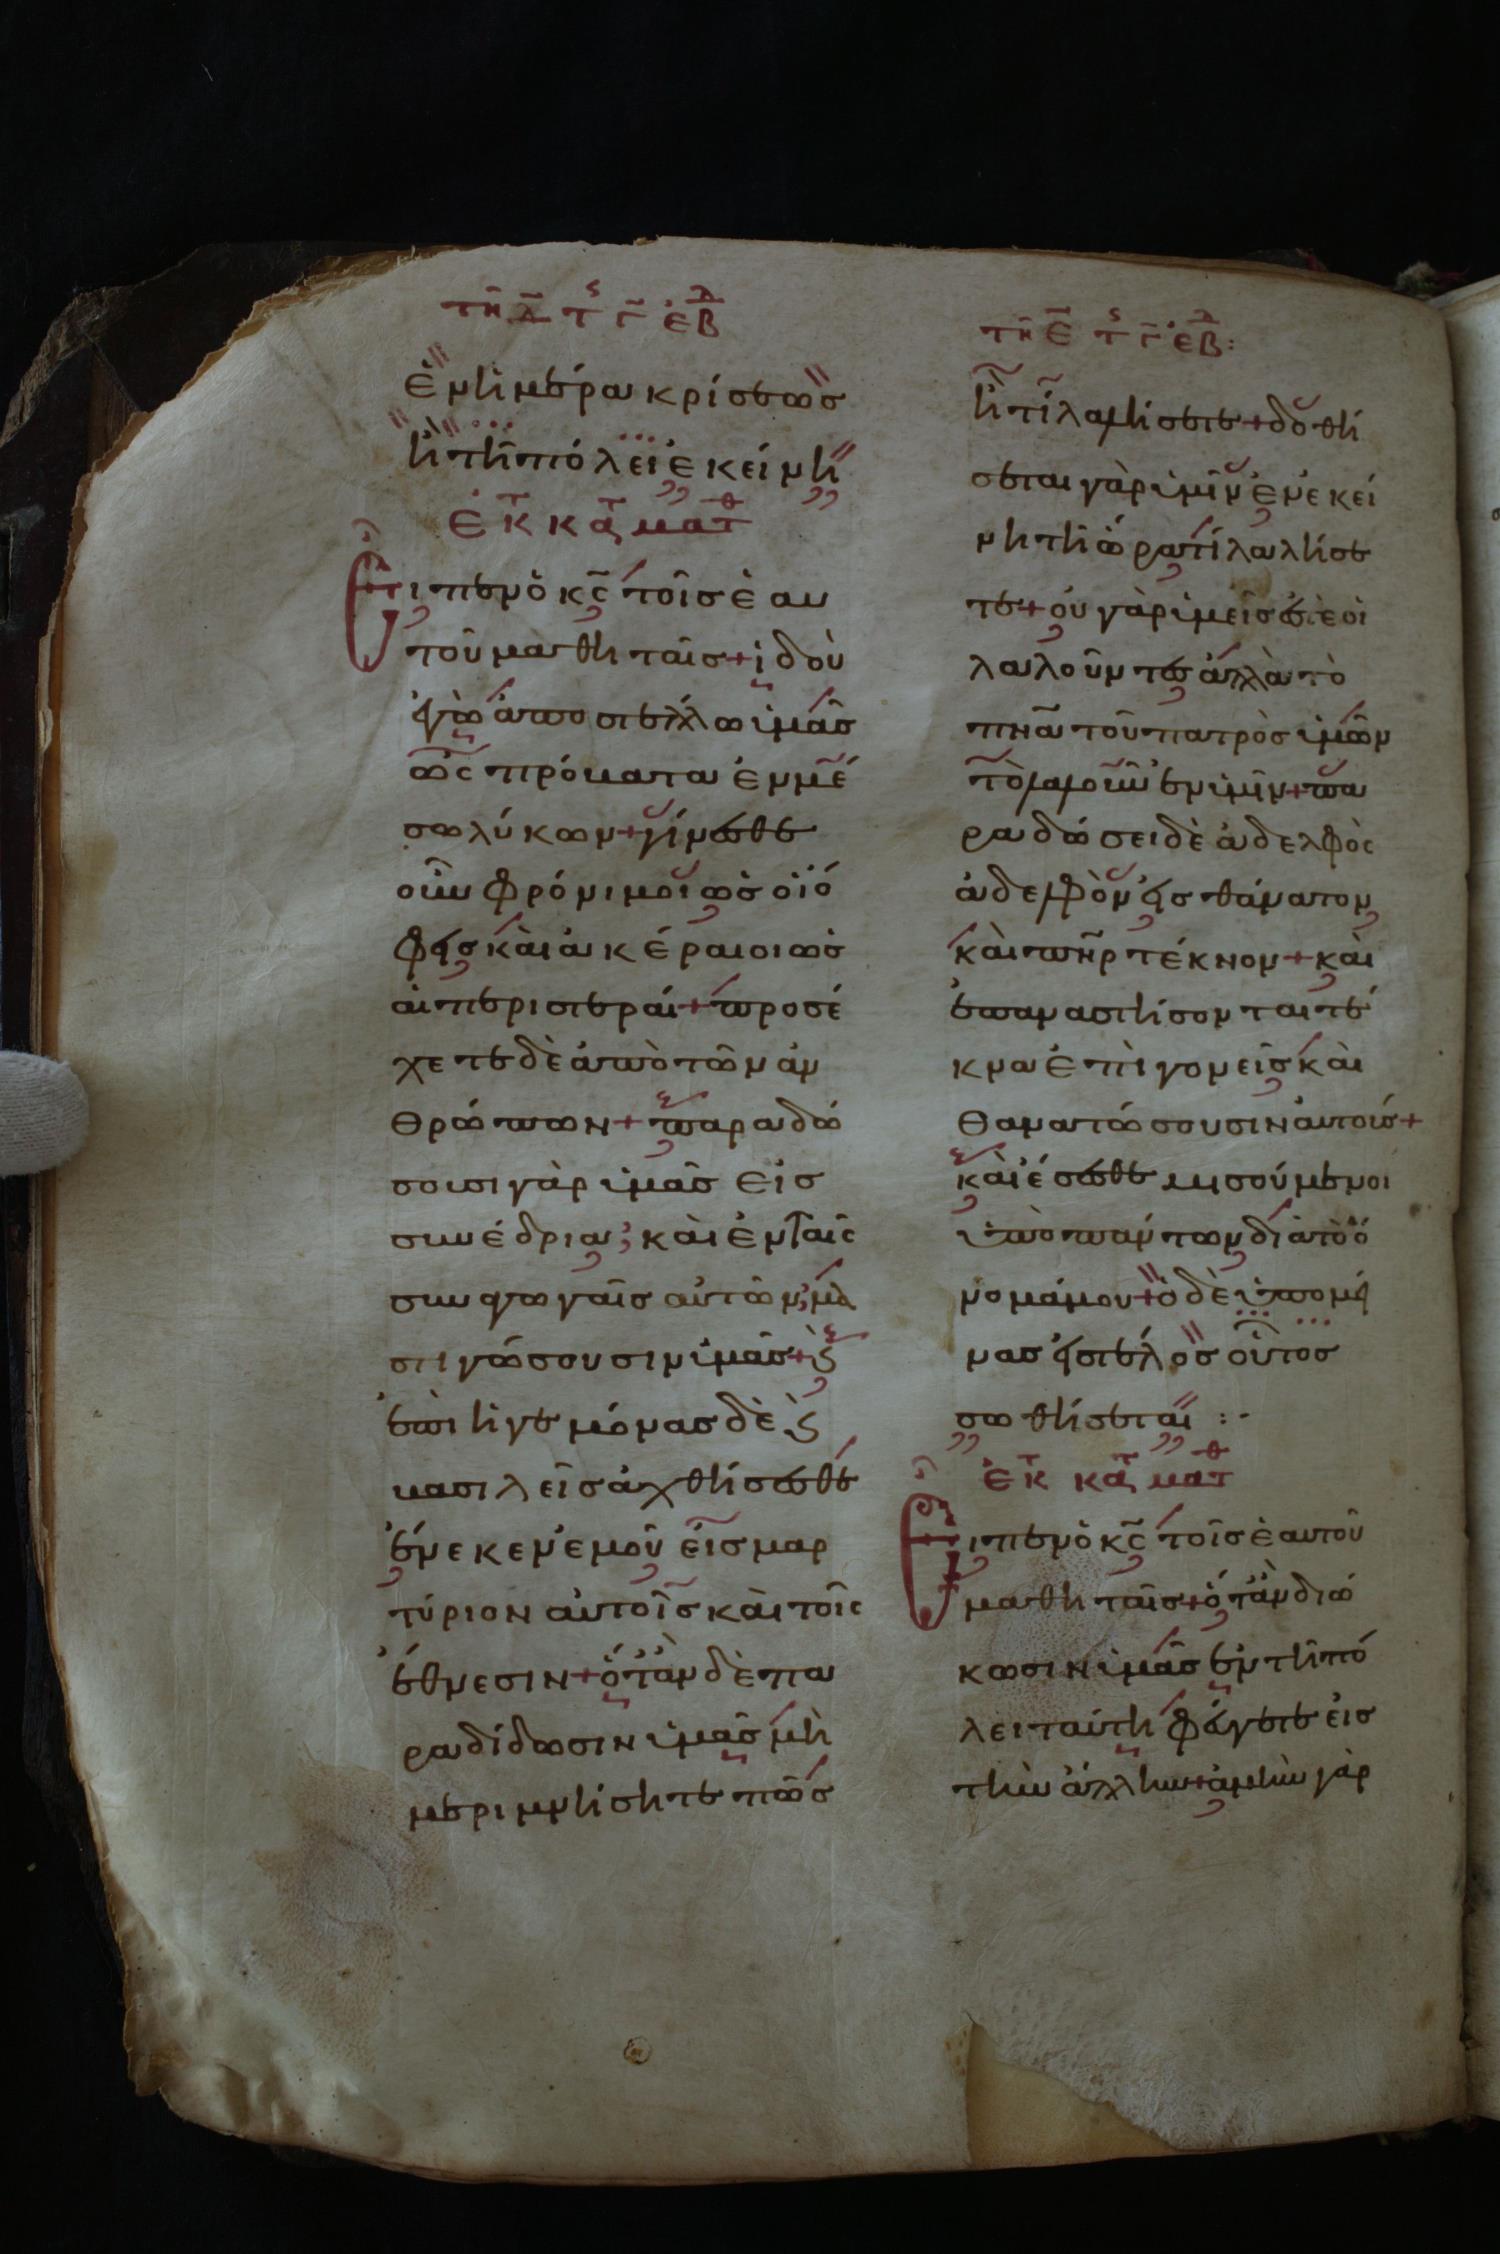 τῆ δ̄ τς γ̄ ἑβδ
ἐν ἡμέρα κρίσεως
ἢ τῆ πόλει ἐκείνη
ἐκ κατ ματθ
Εἶπεν ὁ κς τοῖς ἑαυ
τοῦ μαθηταῖς + ἰδοὺ
ἐγὼ ἀποστέλλω ὑμᾶς
ὡς πρόβατα ἐν μέ
σω λύκων + γίνεσθε
οὖν φρόνιμοι ὡς οἱ ὄ
φεις καὶ ἀκέραιοι ὡς
αἱ περιστεραί + προσέ
χετε δὲ ἀπὸ τῶν ἀν
θρώπων + παραδώ
σουσι γὰρ ὑμᾶς εἰς
συνέδρια, καὶ ἐν ταῖς
συναγωγαῖς αὐτῶν, μα
στιγώσουσιν ὑμᾶς + ϗ
ἐπὶ ἡγεμόνας δὲ ϗ
βασιλεῖς ἀχθήσεσθε
ἕνεκεν ἐμοῦ εἰς μαρ
τύριον αὐτοῖς καὶ τοῖς
ἔθνεσιν + ὅταν δὲ πα
ραδίδωσιν ὑμᾶς μὴ
μεριμνήσητε πῶς
τῆ ε̄ τς γ̄ ἑβδ :
ἢ τί λαλήσετε + δοθή
σεται γὰρ ὑμῖν ἐν ἐκεί
νη τῆ ὥρα τί λαλήσε
τε + οὐ γὰρ ὑμεῖς ἐστὲ οἱ
λαλοῦντες ἀλλὰ τὸ
πνα τοῦ πατρὸς ὑμῶν
τὸ λαλοῦν ἐν ὑμῖν + πα
ραδώσει δὲ ἀδελφὸς
ἀδελφὸν εἰς θάνατον
καὶ πηρ τέκνον + καὶ
ἐπαναστήσονται τέ
κνα ἐπὶ γονεῖς καὶ
θανατώσουσιν αὐτούς +
καὶ ἔσεσθε μισούμενοι
ὑπὸ πάντων διὰ τὸ ὄ
νομά μου + ὁ δὲ ὑπομεί
νας εἰς τέλος οὗτος
σωθήσεται :-
ἐκ κατ ματθ
Εἶπεν ὁ κς τοῖς ἑαυτοῦ
μαθηταῖς + ὅταν διώ
κωσιν ὑμᾶς ἐν τῆ πό
λει ταύτη φεύγετε εἰς
τὴν ἄλλην + ἀμὴν γὰρ